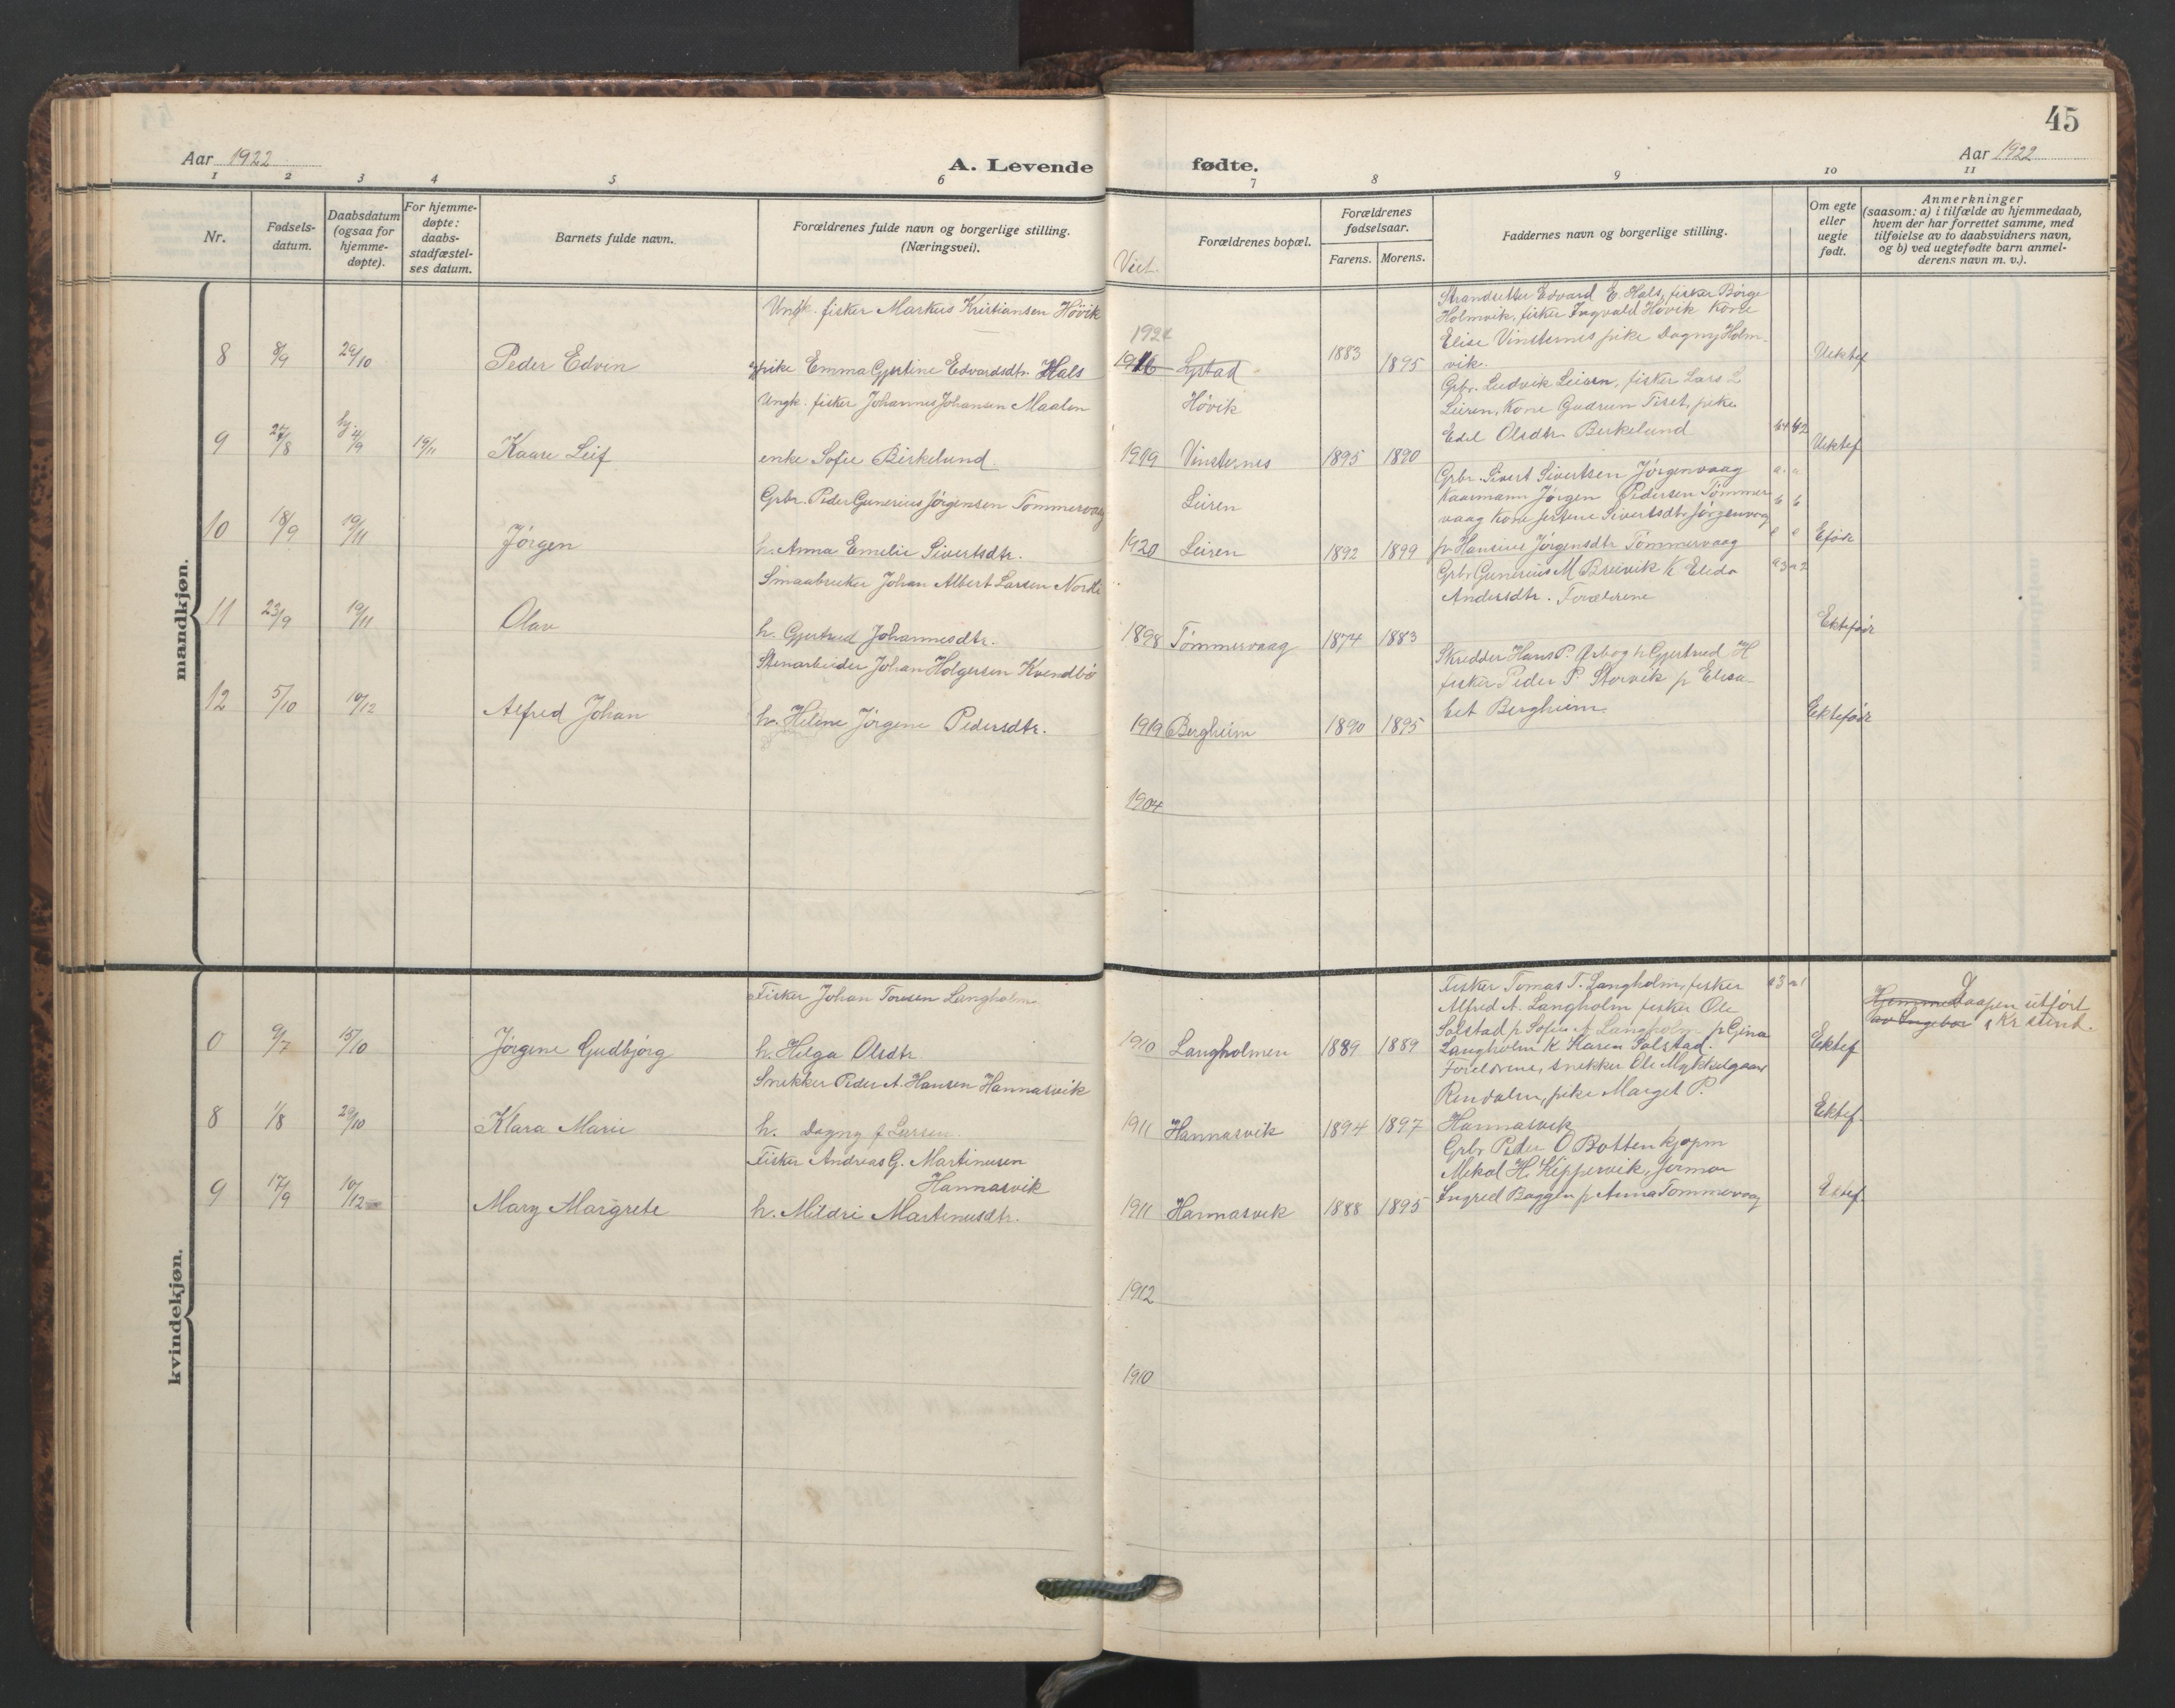 45
Aar 1922
A. Levende fødte.
Aar 1922
1 2 3 4 5 6 7 8 9 10 11
Nr.
Fødsels-
datum.
Daabsdatum
(ogsaa for
hjemme-
døpte).
For hjemme-
døpte:
daabs-
stadfæstel-
ses datum.
Barnets fulde navn.
Forældrenes fulde navn og borgerlige stilling.
(Næringsvei).
Viet
Forældrenes bopæl.
Forældrenes
fødselsaar.
Farens. Morens.
Faddernes navn og borgerlige stilling.
Om egte
eller
uegte
født.
Anmerkninger
(saasom: a) i tilfælde av hjemmedaab,
hvem der har forrettet samme, med
tilføielse av to daabsvidners navn,
og b) ved uegtefødte barn anmel-
derens navn m. v.).
mandkjøn.
8 8/9 29/10 Peder Edvin
Ungk. fisker Markus Kristiansen Hövik
pike Emma Gjertine Edvardsdtr. Hals
1924
1916 Lystad
Høvik
1883 1895
Strandsitter Edvard E. Hals, fisker Börge
Holmvik, fisker Ingvald Høvik Kone
Elise Vinsternes pike Dagny Holm-
vik.
Uektef
9 27/8 hj. 4/9 19/11 Kaare Leif
Ungk. fisker Johannes Johansen Maalen
enke Sofie Birkelund.
1919 Vinsternes
Leiren
1895 1890
Grbr. Ludvik Leiren, fisker Lars L
Leiren, Kone Gudrun Tiset, pike
Edel Olsdtr. Birkelund
Uektef
10 18/9 19/11 Jörgen
Grbr. Peder Gunerius Jörgensen Tömmervaag
h. Anna Emelie Sivertsdtr.
1920 Leiren
1892 1899
Grbr. Sivert Sivertsen Jörgenvaag
Kaarmann Jörgen Pedersen Tömmer
vaag Kone Sivertsdtr. Jörgenvaag
p. Hansine Jörgensdtr Tömmervaag
Eføde
11 23/9 19/11 Olav
Smaabruker Johan Albert Larsen Nordli
h. Gjertrud Johannesdtr.
1898 Tömmervaag
1874 1883
Grbr Gunerius M Breivik K Elida
Andersdtr. Forældrene
Ektefödt
12 5/10 10/12 Alfred Johan
Stenarbeider Johan Holgersen Kvendbö
h. Helene Jörgene Pedersdtr.
1919 Bergheim
1890 1895
Skredder Hans P. Ørbog h Gjertrud H
fisker Peder P Storvik p Elisa-
bet Bergheim.
Ektefödt
1904
kvindekjøn.
0 9/7 15/10 Jörgine Gudbjörg
Fisker Johan Toresen Langholm
h. Helga Olsdtr.
1910 Langholmen
1889 1889
Fisker Tomas T. Langholm, fisker
Alfred A. Langholm fisker Ole
Solstad p Sofie A Langholm p Gina
Langholm K Karen Solstad.
Ektef
Hjemmedaapen utfört
av Ingebor
8 1/8 29/10 Klara Marie
Snekker Peder A. Hansen Hannasvik
h. Dagny f Larsen.
1911 Hannasvik
1894 1897
Foreldrene, snekker Ole Myklegaar
Rindalen, pike Marget P.
Hannasvik
Ektef.
9 17/9 10/12 Mary Margrete
Fisker Andreas G. Martinusen
Hannasvik
h. Mildri Martinusdtr.
1911 Hannasvik
1888 1895
Grbr Peder O Botten kjøpm
Mekal H. Kippervik, Jormor
Ingred Baggen p Anna Tömmervaag
Ektef
1912
1910